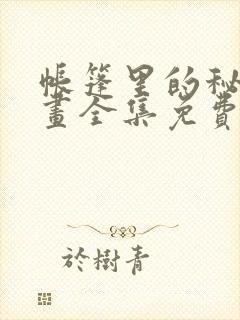 帳篷里的秘
畫全集免費
於樹青